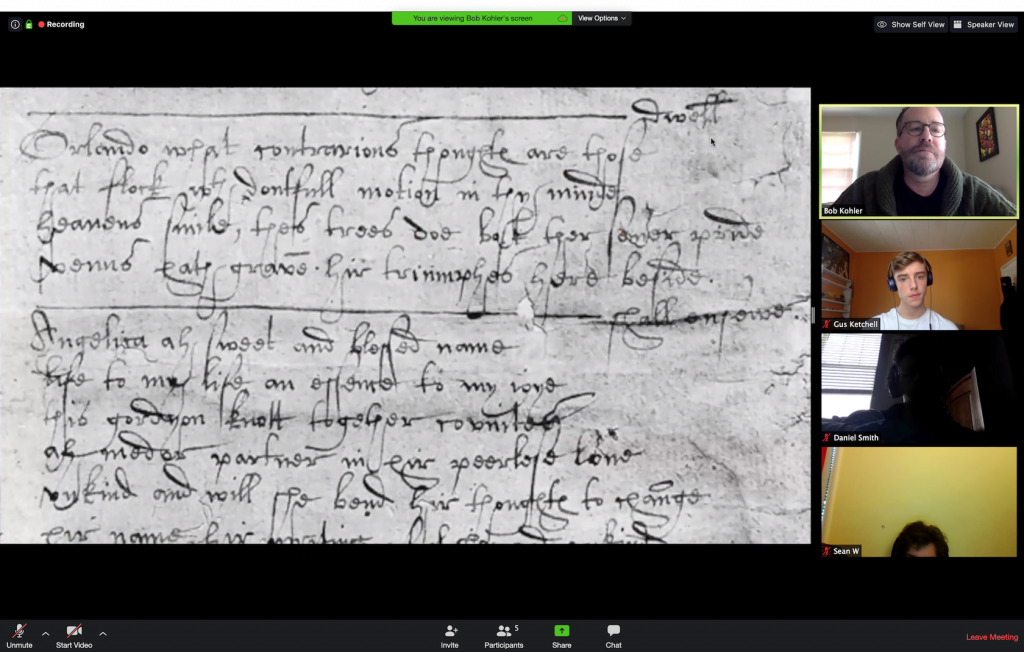 Recording
You are viewing Bob Kohler's screen
View Options
Show Self View
Speaker View
dwell
Orlando what contrarious thoughtes are those
that flock wth doutfull motion in thy minde
heavens smile, thes trees doe bost ther somer pride
venus hath graven hir triumphes here beside.
shall ensewe.
Angelica ah sweet and blessed name
life to my life an essence to my ioye
this gordyon knott together counites
ah medor partner in hir peerlese love
vnkind and will she bend hir thoughtes to change
hir name hir writing
Bob Kohler
Gus Ketchell
Daniel Smith
Sean W
Unmute
Start Video
Invite
Participants 5
Share
Chat
Leave Meeting